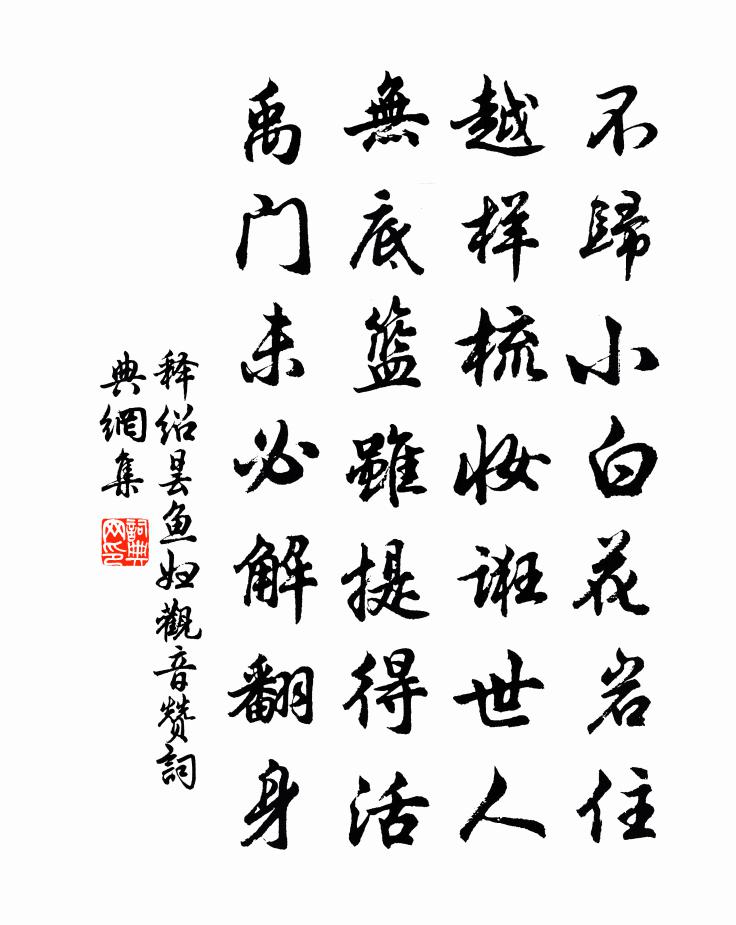 不歸小白花岩住
越样梳妆诳世人
無底篮雖提得活
禹门未必解翻身
释绍昙鱼妇觀音赞詞
典網集
詞典网印